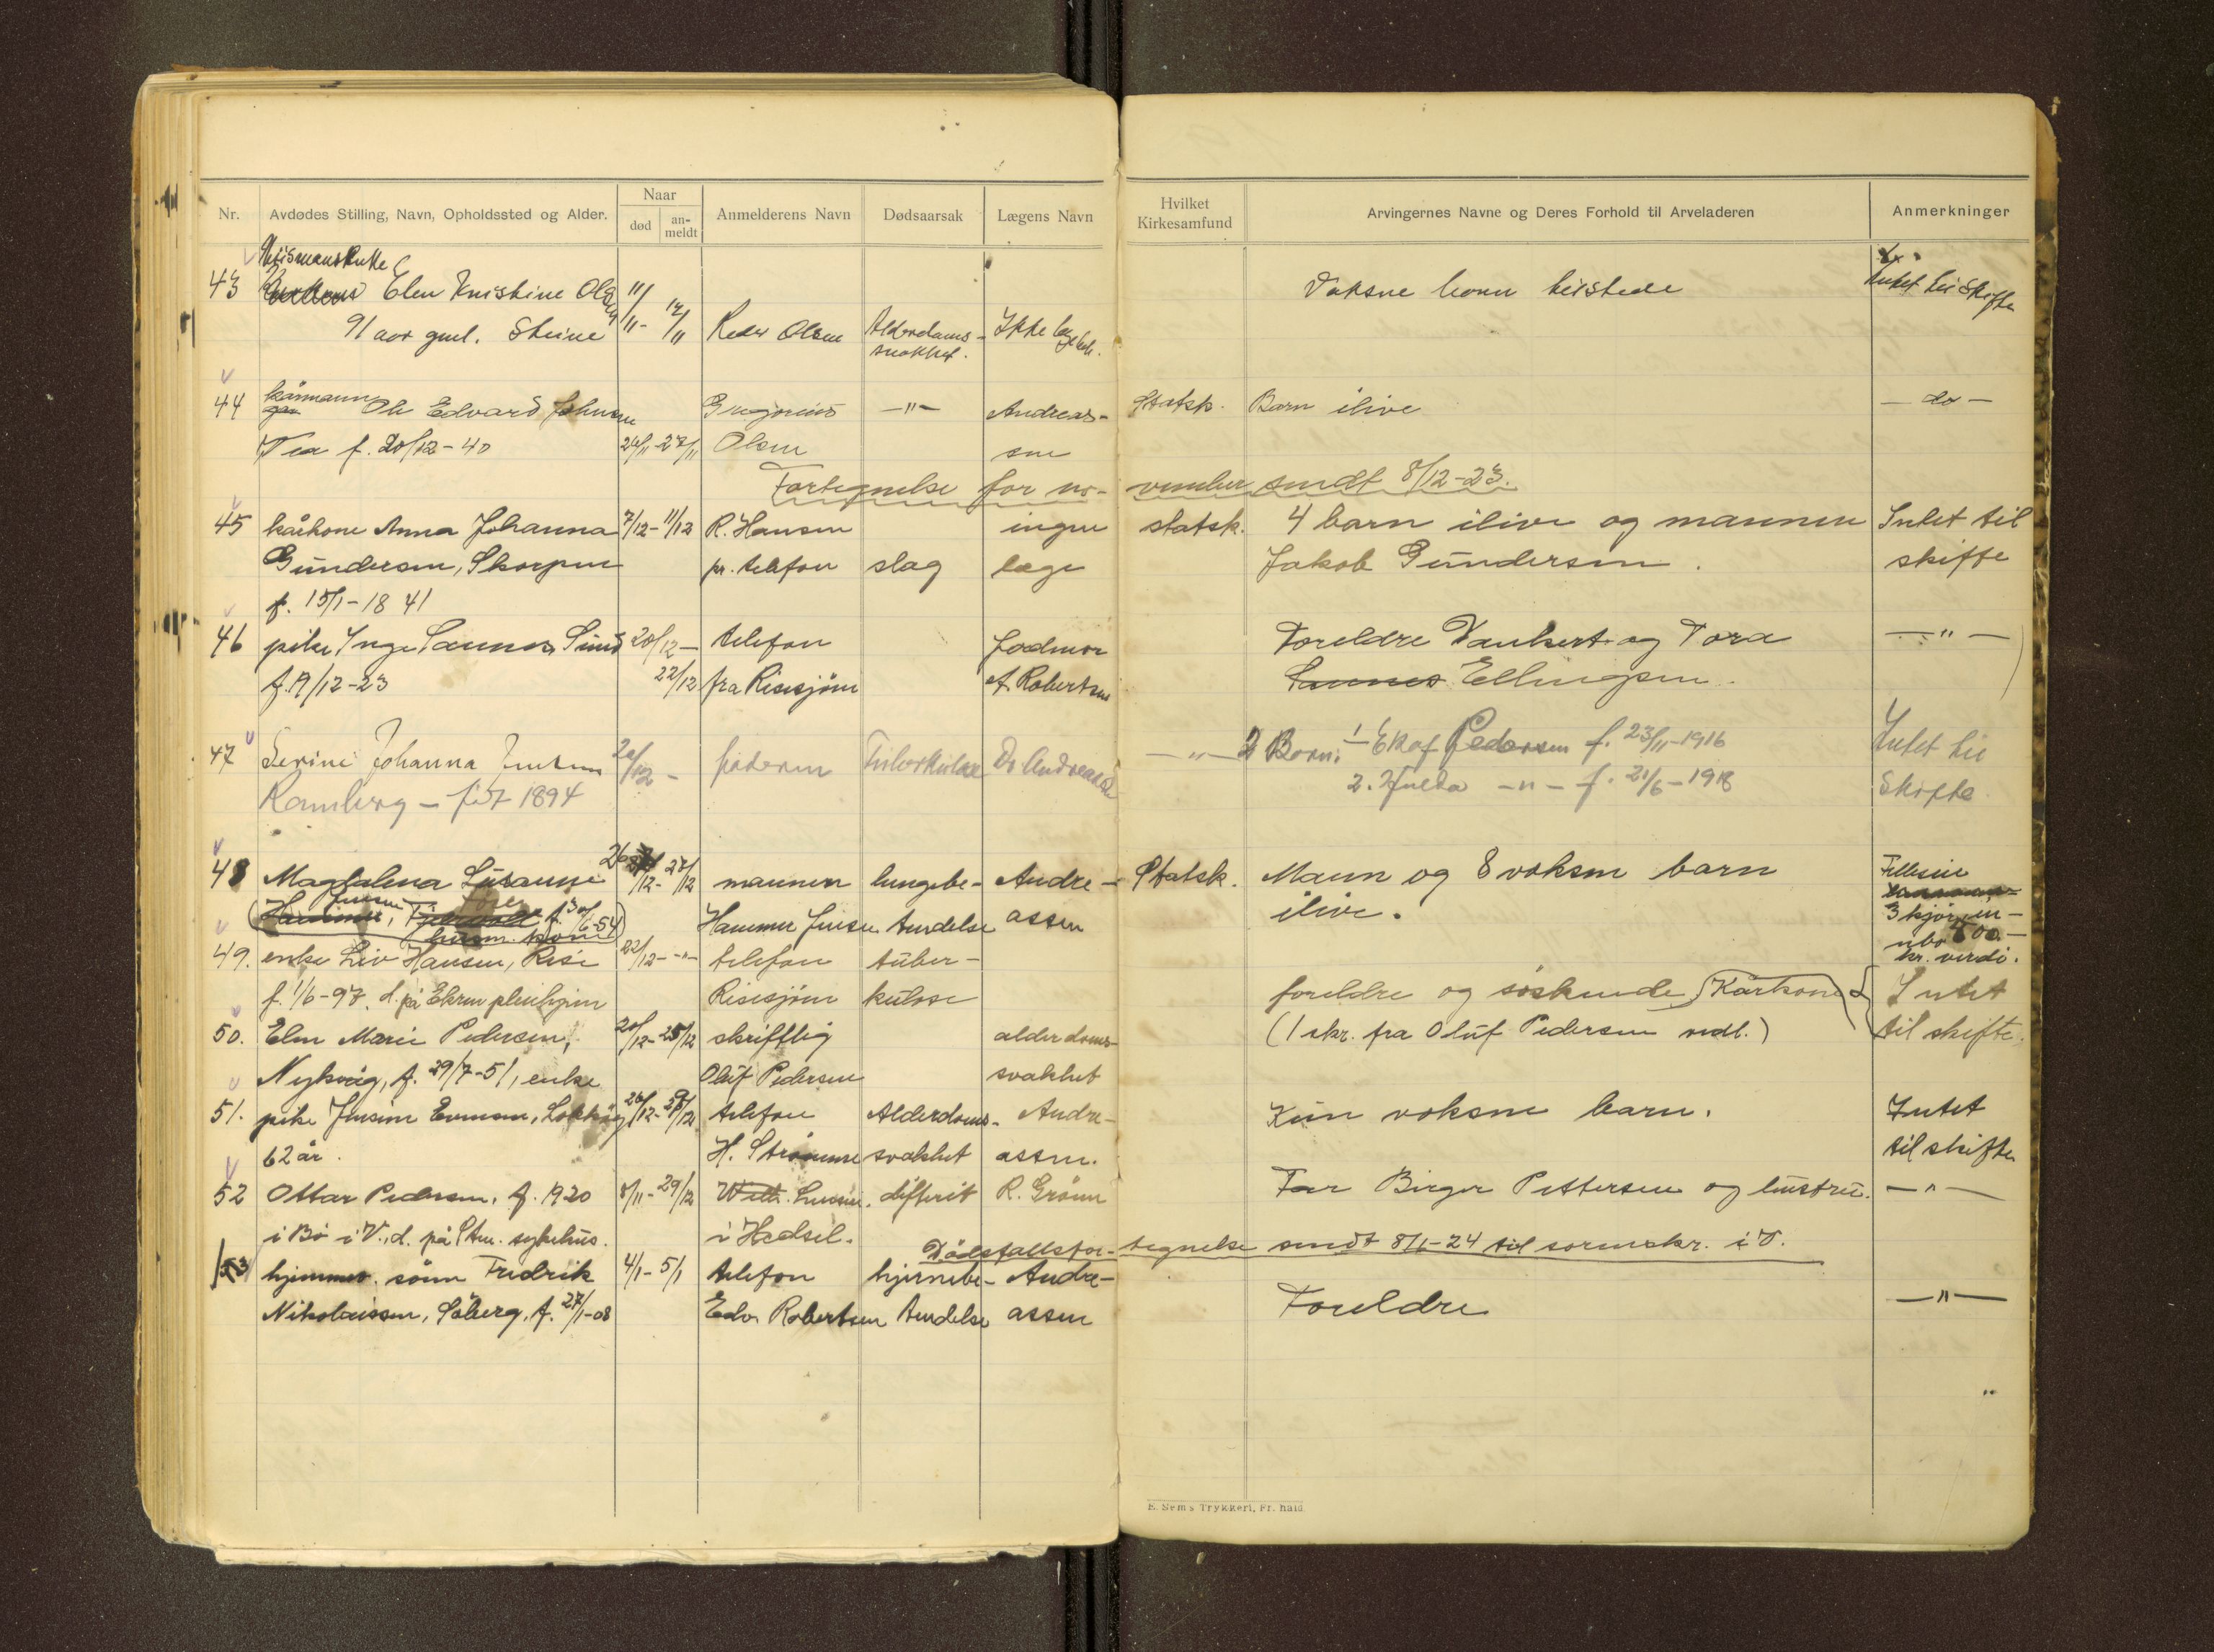 Nr.
Avdødes Stilling, Navn, Opholdssted og Alder.
Naar
død
an-
meldt
Anmelderens Navn
Dødsaarsak
Lægens Navn
Hvilket
Kirkesamfund
Arvingernes Navne og Deres Forhold til Arveladeren
Anmerkninger
43 Elen Kristine Olsen 11/11- 12/11 Vaksne born Intet til Skifte
91 aar gml. Steine Peder Olsen Alderdoms- Ikke
44 kårmann Ole Edvard Johnsen Gregorius —"— Andreas- Statsk. Barn ilive — do —
f. 20/12-40 24/11-27/11 Olsen sen
Fortegnelse for no- vember sendt 8/12-23.
45 kårkone Anna Johanna 7/12-11/12 R. Hansen ingen statsk. 4 barn ilive og mannen Intet til
Gundersen, Skorpen pr. telefon slag læge Jakob Gundersen. skifte
f. 15/1-1841
46 pike Inga Sannes Sund 20/12— telefon Jordmor Foreldre og Tora —"—
f. 19/12-23 22/12 fra Risesjøen A. Robertsen Sannes Ellingsen.
47 Serine Johanna Jensen 20/12- faderen Tuberkulose Dr Andreassen —"— 2 Born. 1 Pedersen f. 23/11-1916 Intet til
Ramberg – født 1894 2. Hulda –"– f. 21/6-1918 Skifte
48 Magdalena Susanne 26/12-27/12 mannen lungebe- Andre- Statsk. Mann og 8 voksne barn
Jensen f. 30/6-54 Hammer Jensen tendelse assen ilive. 3 kjør, en-
husm. kone
nbo 500.-
kr. verdi.
49. enke Liv Hansen, Rise 22/12- -"- telefon tuber-
f. 1/6-97. d. på Ekren pleiehjem Risesjøen kulose foreldre og søskende Intet
50. Elen Marie Pedersen, 20/12-25/12 skriftlig alderdoms- (1 skr. fra Oluf Pedersen vedl.) til skifte.
Nykvåg, f. 29/7-51, enke Oluf Pedersen svakhet
51. pike Jensine Evensen, 26/12-29/12 telefon Alderdoms- Andre- Kun voksne barn. Intet
62 år. H. Strømme svakhet assen. til skifte
52 Ottar Pedersen, f. 1920 8/11-29/12 Wilh. Larsen. difterit R. Grønn Far Birger Pettersen og hustru. —"—
i Bø i V., d. på Stm. sykehus. i Hadsel.
Dødsfallsfor- tegnelse sendt 8/1-24 til sorenskr. i V.
53 hjemmev. sønn Fredrik 4/1-5/1 telefon hjernebe- Andre-
Nikolaissen, Søberg, f. 27/1-08 Edv. Robertsen tendelse assen Foreldre —"—
E. Sem's Trykkeri, Fr.hald